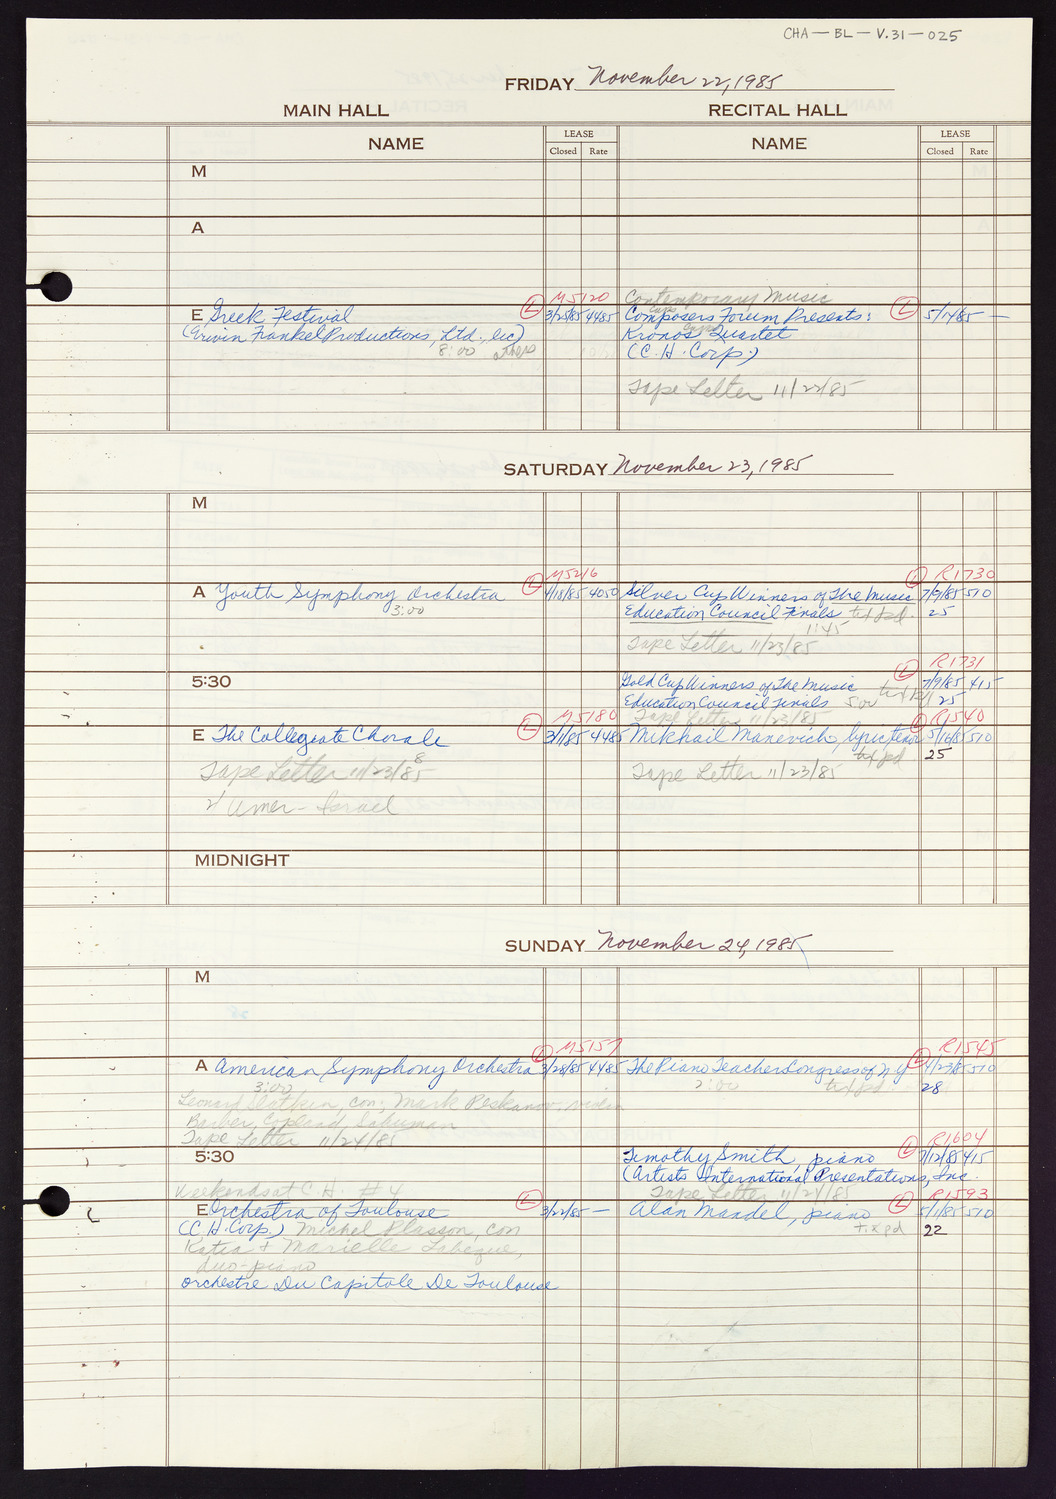 CHA — BL — V.31 — 025
FRIDAY November 22, 1985
MAIN HALL RECITAL HALL
NAME LEASE Closed Rate NAME LEASE Closed Rate
M
A
M5120 Contemporary Music
E Greek Festival L 3/25/85 4485 Composers Forum Presents: L 5/1/85 —
(Ervin Frankel Productions, Ltd., Inc) Kronos Quartet
8:00 (C.H. Corp.)
Tape Letter 11/22/85
SATURDAY November 23, 1985
M
M5216 R1730
A Youth Symphony Orchestra L 4/18/85 4050 Silver Cup Winners of The Music L 7/9/85 510
3:00 Education Council Finals txt pd. 25
1:45
Tape Letter 11/23/85
R1731
5:30 Gold Cup Winners of The Music L 7/9/85 415
Education Council Finals 500 25
M5180 Tape Letter 11/23/85 R1540
E The Collegiate Chorale L 3/11/85 4485 Mikhail Manevich, lyric tenor L 5/16/85 510
8 txt pd 25
Tape Letter 11/23/85 Tape Letter 11/23/85
Amer - Israel
MIDNIGHT
SUNDAY November 24, 1985
M
M5157 R1545
A American Symphony Orchestra L 3/28/85 4485 The Piano Teachers Congress of N.Y L 4/23/85 510
3:00 2:00 txt pd 28
Leonard Slatkin, con; Mark Peskanov, violin
Barber, Copland, Schuman
Tape Letter 11/24/85 R1604
5:30 Timothy Smith, piano L 7/12/85 415
(Artists International Presentations, Inc.
Weekends at C.H. #4 Tape Letter 11/24/85 R1593
E Orchestra of Toulouse L 3/22/85 — Alan Mandel, piano L 5/1/85 510
(C H Corp.) Michel Plasson, con tix pd 22
Katia + Marielle Labeque,
duo-piano
Orchestre Du Capitole De Toulouse